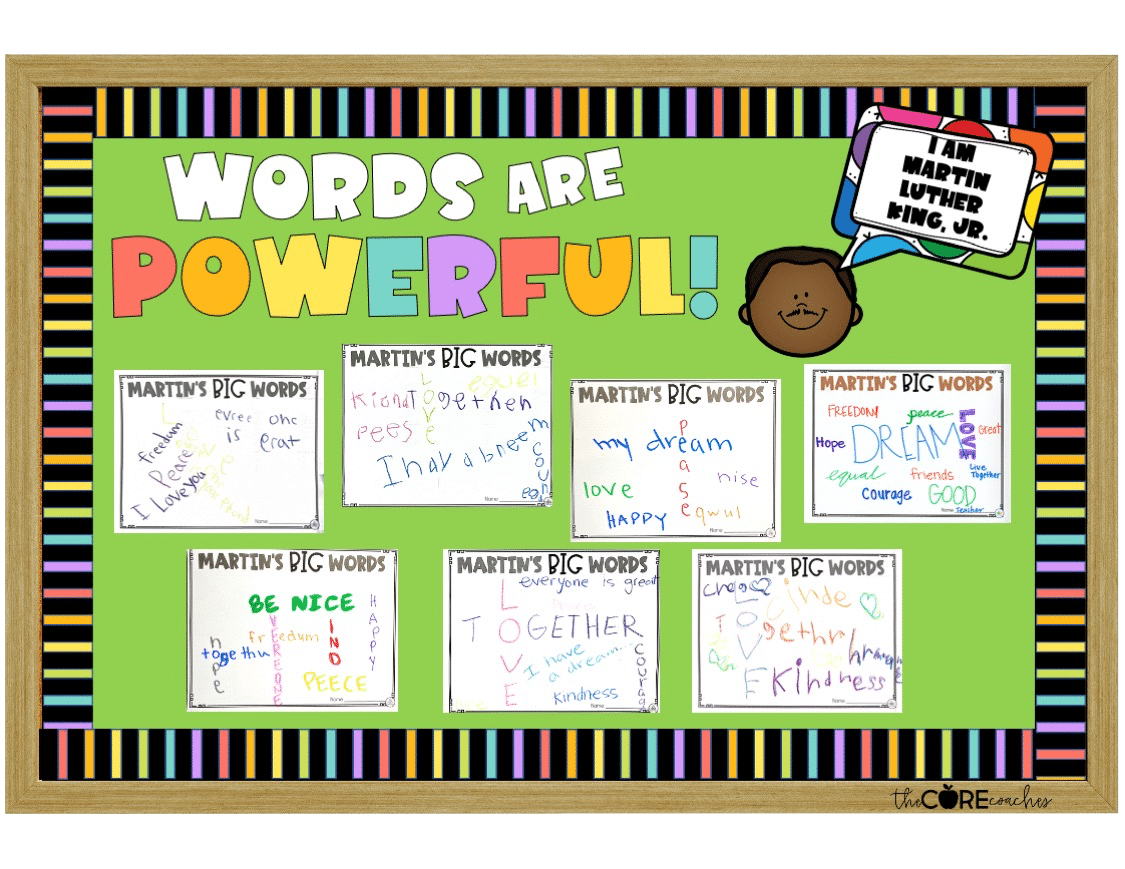 WORDS ARE
POWERFUL!
I AM
MARTIN
LUTHER
KING, JR.
MARTIN'S BIG WORDS
L
evree one
is erat
freedum
Peace
I Love you
Name
MARTIN'S BIG WORDS
equel
Love
Together
pees
I hav a breem
Name
MARTIN'S BIG WORDS
my dream
Pease
nise
love
HAPPY
eqwul
Name
MARTIN'S BIG WORDS
FREEDOM
peace
LOVE
Great
Hope
DREAM
equal
friends
Live
Together
Courage
GOOD
Name Teacher
MARTIN'S BIG WORDS
BE NICE
HAPPY
VEREONE
freedum
IND
hope
togethu
PEECE
Name
MARTIN'S BIG WORDS
everyone is great
LOVE
TOGETHER
I have
a dream...
Courag
kindness
Name
MARTIN'S BIG WORDS
LOVE
Togethr
Kindness
Name
theCOREcoaches